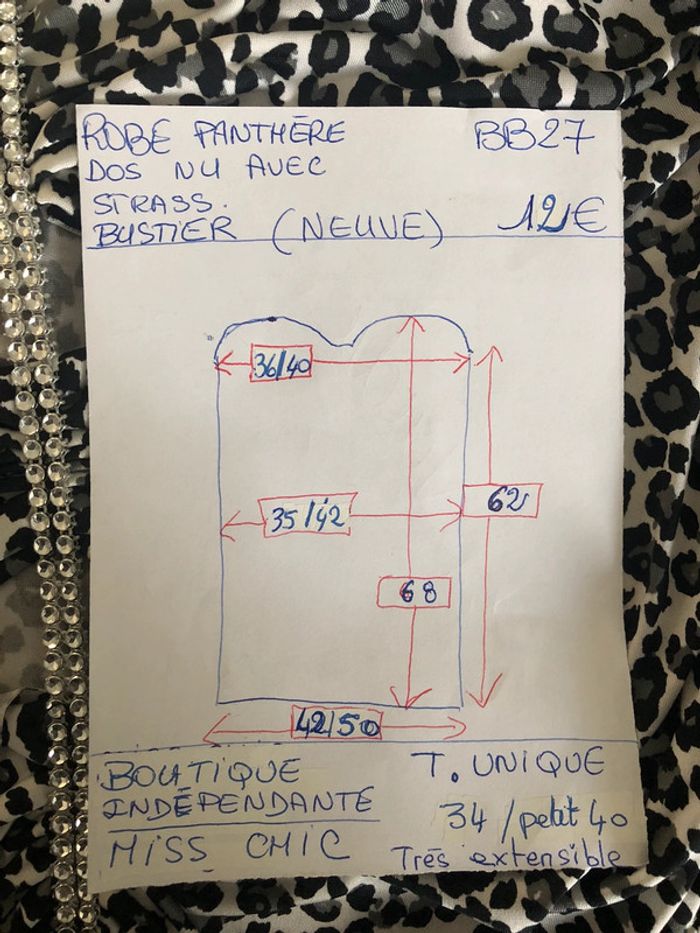 ROBE PANTHĒRE BB27
DOS NU AVEC
STRASS.
BUSTIER (NEUVE) 12€
36/40
35/42
62
68
42/50
BOUTIQUE
INDÉPENDANTE
MISS CHIC
T. UNIQUE
34/petit 40
Trēs extensible